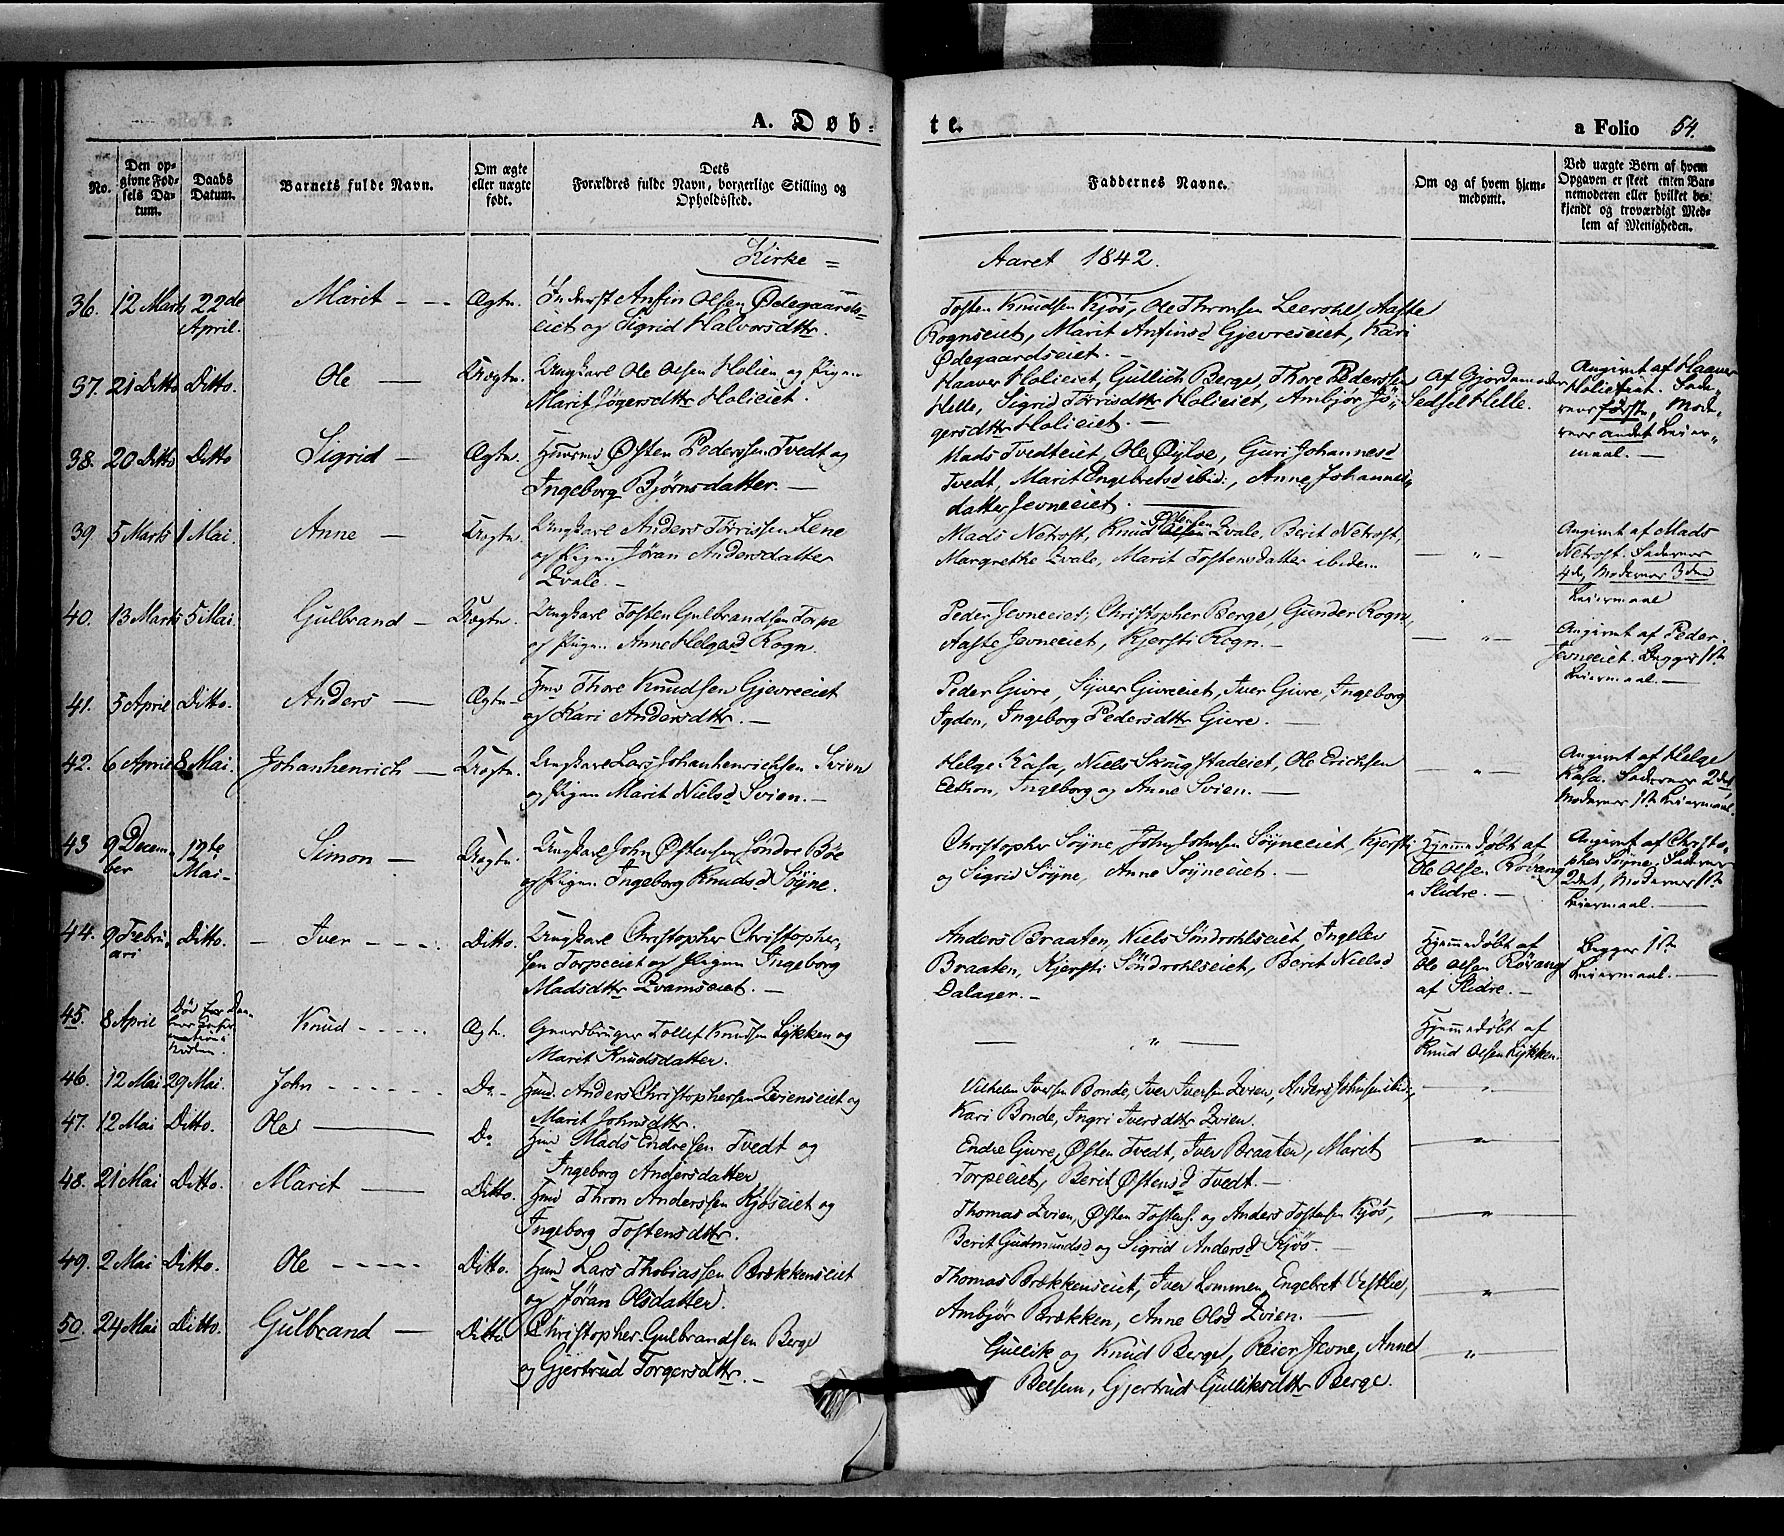 A. Døb-
te.
a Folio 54.
No.
Den op-
givne Fød-
sels Da-
tum.
Daabs
Datum.
Barnets fulde Navn.
Om ægte
eller uægte
født.
Dets
Forældres fulde Navn, borgerlige Stilling og
Opholdssted.
Faddernes Navne.
Om og af hvem hjem-
medømt.
Ved uægte Børn af hvem
Opgaven er skeet enten Bar-
nemoderen eller hvilket be-
kjendt og troværdigt Med-
lem af Menigheden.
Kirke =
Aaret 1842.
36. 12 Marts 22de April. Marit - - - Ægte. Inderst Anfin Olsen Ødegaards-
eiet og Sigrid Halvorsdttr.
Tosten Knudsen Kjøs, Ole Thronsen Leerohl, Aaste
Rognseiet, Marit Anfinsd Gjevreeiet, Kari
Ødegaardseiet. -
37. 21 Ditto Ditto. Ole — Uægte. Ungkarl Ole Olsen Holien og Pigen
Marit Jøgersdttr Holieiet.
Haaver Holieiet, Gullich Berge, Thore Pedersen
Helle, Sigrid Tørrisdttr Holieiet, Ambjør Jø-
gersdttr Holieiet. -
Af Gjordemoder
Sedsel Helle.
Angivet af Haaver
Holieiet. Fade-
rens første, Mode-
rens andet Leier-
maal. -
38. 20 Ditto Ditto Sigrid — Ægte. Huusmd Østen Pedersen Tvedt og
Ingeborg Bjørnsdatter. —
Mads Tvedteiet, Ole Øyloe, Guri Johannesd
Tvedt, Marit Engebretsd ibid:, Anne Johannes-
datter Jevneeiet. —
39. 5 Marts 1 Mai. Anne — Uægte. Ungkarl Anders Tørrissen Lene
og Pigen Jøran Andersdatter
Qvale. -
Mads Netrost, Knud Olsen Qvale, Berit Netrost,
Margrethe Qvale, Marit Tostensdatter ibidem.
— " —
Angivet af Mads
Netrost. Faderens
4de, Moderens 3die
Leiermaal
40. 13 Marts 5 Mai. Gulbrand — Uægte. Ungkarl Tosten Gulbrandsen Torpe
og Pigen Anne Helgesd Rogn.
Peder Jevneeiet, Christopher Berge, Gunder Rogn,
Aaste Jevneeiet, Kjersti Rogn. —
— " —
Angivet af Peder
Jevneeiet. Begges 1ste
Leiermaal. —
41. 5 April Ditto. Anders — Ægte. Hmd Thore Knudsen Gjevreeiet
og Kari Andersdttr. —
Peder Givre, Siver Givreeiet, Iver Givre, Ingeborg
Igden, Ingeborg Pedersdttr Givre. —
42. 6 April 8 Mai. Johanhenrich — Uægte. Ungkarl Lars Johanhenrichsen Svien
og Pigen Marit Nielsd Svien. —
Helge Kasa, Niels Skrugstadeiet, Ole Ericksen
Eltron, Ingeborg og Anne Svien. —
— " —
Angivet af Helge
Kasa. Faderens 2det,
Moderens 1ste Leiermaal.
43 9 Decem-
ber 12te
Mai- Simon — Uægte. Ungkarl John Østensen Søndre Bøe
og Pigen Ingeborg Knudsd Søyne.
Christopher Søyne, John Johnsen Søyneeiet, Kjersti
og Sigrid Søyne, Anne Søyneeiet. —
Hjemmedøbt af
Ole Olsen Røvang
i Slidre. —
Angivet af Christo-
pher Søyne, Faderens
2det, Moderens 1ste
Leiermaal. —
44. 9 Febru-
ari Ditto. - Iver - - - . Ditto. Ungkarl Christopher Christopher-
sen Torpeeiet og Pigen Ingeborg
Madsdttr Qvamseiet. —
Anders Braaten, Niels Søndrohlseiet, Ingelev
Braaten, Kjersti Søndrohlseiet, Berit Nielsd
Dalager. -
Hjemmedøbt af
Ole Olsen Røvang
af Slidre. —
Begges 1ste
Leiermaal. —
45. 8 April Død før Daa-
bens
Kirken. Knud - - - - . Ægte. Gaardbruger Tollef Knudsen Lykken og
Marit Knudsdatter.
— " —
Hjemmedøbt af
Knud Olsen Lykken.
46. 12 Mai 29 Mai. John - - - - - . Do. Hmd. Anders Christophersen Qvienseiet og
Marit Johnsdttr.
Vilhelm Iversen Bonde, Iver Iversen Qvien, Anders Johnsen ibid:,
Kari Bonde, Ingri Iversdttr Qvien.
— " —
47. 12 Mai Ditto. Ole — Do Hmd Mads Endresen Tvedt og
Ingeborg Andersdatter
Endre Givre, Østen Tvedt, Iver Braaten, Marit
Torpeeiet, Berit Østensd Tvedt. —
— " —
48. 21 Mai Ditto. Marit — Ditto. Hmd Thron Anderssen Kjøseiet og
Ingeborg Tostensdttr.
Thomas Qvien, Østen Tostens. og Anders Tostensen Kjøs,
Berit Gudmundsd og Sigrid Andersd Kjøs. —
— " —
49. 2 Mai Ditto. Ole - - - - - Ditto. Hmd Lars Thobiassen Brækkenseiet
og Jøran Olsdatter.
Thomas Brækkenseiet, Iver Lommen, Engebret Vestlie,
Ambjør Brækken, Anne Olsd Qvien. —
— " —
50. 24 Mai Ditto. Gulbrand — Ditto Christopher Gulbrandsen Berge
og Gjertrud Torgersdttr. —
Gullik og Knud Berge, Reier Jevne, Anne
Belsem, Gjertrud Gulliksdttr Berge.
— " —